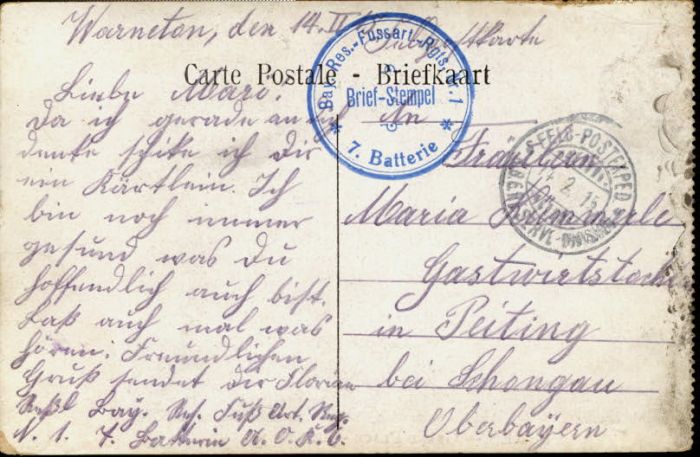 Warneton, den 14. II.
Feldpostkarte
Carte Postale - Briefkaart
Bay. Res.-Fussart.-Rgts. Nr. 1
Brief-Stempel
* 7. Batterie *
Liebe Mari.
Da ich gerade an
denke schike ich Dir
ein Kärtlein. Ich
bin noch immer
gesund was Du
hoffendlich auch bist.
Laß auch mal was
hören. Freundlichen
Gruß sendet dir Florian
Bay. Res. Fuß Art. Reg.
N. 1 7. Batterie A.O.K. 6.
An
Fräulein
Maria
Gastwirtstochter
in Peiting
bei Schongau
Oberbayern
S. FELD-POSTEXPED
2. 15
RESERVE-DIVISION